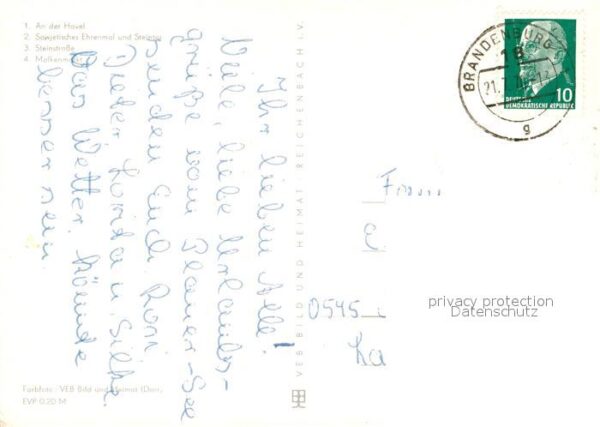 1. An der Havel
2. Sowjetisches Ehrenmal und Steintor
3. Steinstraße
4. 
Ihr lieben Alle!
Viele, liebe Urlaubs-
grüße vom Plauer-See
senden Euch Roni,
Dieter, u. Silke.
Das Wetter könnte
besser sein.
VEB BILD UND HEIMAT REICHENBACH I. V.
BRANDENBURG
18
21.7.
g
10
DEUTSCHE
DEMOKRATISCHE REPUBLIK
0545
privacy protection
Datenschutz
Farbfoto: VEB Bild und Heimat
EVP 0,20 M